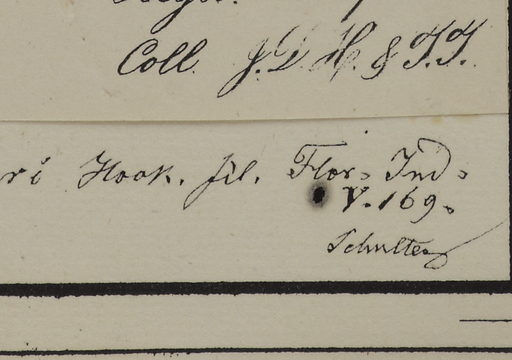 Coll. J. D. H. & T. T.
ri Hook. fil. Flor. Ind.
V. 169.
Schultes